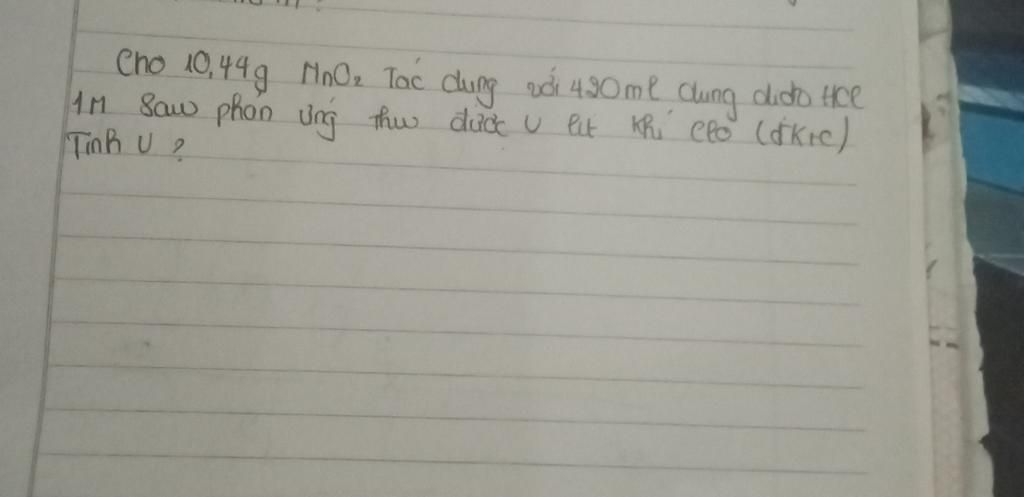 Cho 10,44g MnO₂ Tác dụng với 420ml dung dịch HCl
1M Sau phản ứng thu được V lít khí clo (đktc)
Tính V ?